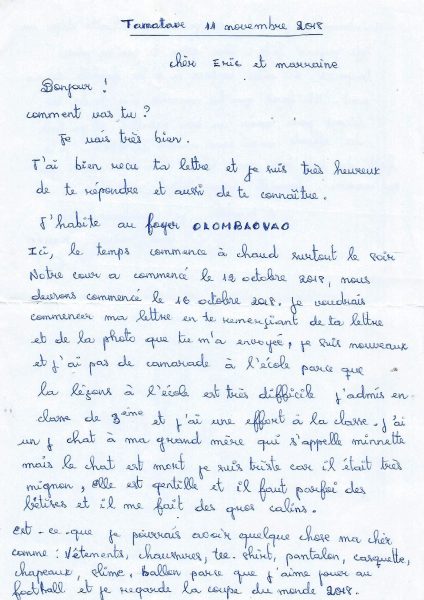 Tamatave 11 novembre 2018
chèr Eric et marraine
Bonjour !
comment vas tu ?
Je vais très bien.
J'ai bien reçu ta lettre et je suis très heureux
de te répondre et aussi de te connaître.
J'habite au foyer OLOMBAOVAO
Ici, le temps commence à chaud surtout le soir
Notre cour a commencé le 12 octobre 2018, nous
devrons commencé le 16 octobre 2018. je voudrais
commencer ma lettre en te remerçiant de ta lettre
et de la photo que tu m'a envoyée, je suis nouveaux
et j'ai pas de camarade à l'école parce que
la leçons à l'école est très difficile j'admis en
classe de 3ème et j'ai une effort à la classe. j'ai
un chat à ma grand mère qui s'appelle minnette
mais le chat est mort je suis triste car il était très
mignon, elle est gentille et il faut parfoi des
bêtises et il me fait des gros calins.
Est-ce-que je pourrais avoir quelque chose ma chèr
comme : Vétements, chaussures, tee-shirt, pantalon, casquette,
chapeaux, slime, Ballon parse que j'aime jouer au
football et je regarde la coupe du monde 2018.